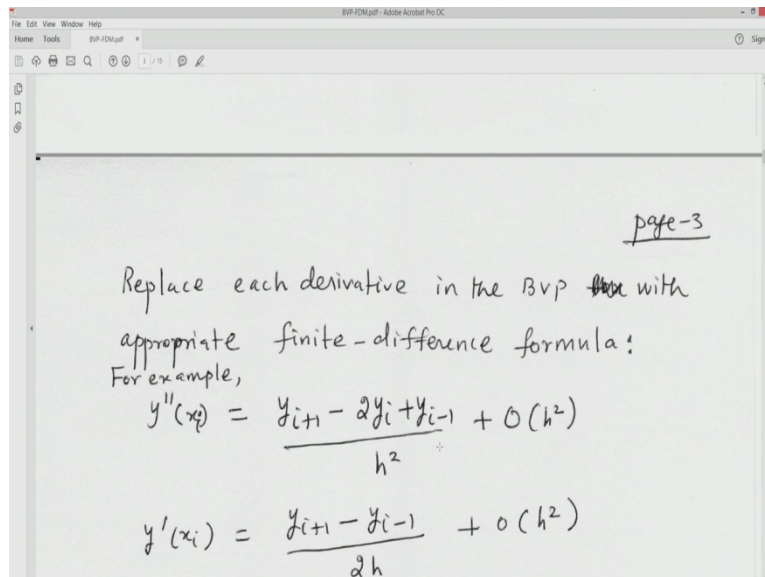 BVP-FDM.pdf - Adobe Acrobat Pro DC
File Edit View Window Help
Home Tools BVP-FDM.pdf × Sign
3 / 15
page-3
Replace each derivative in the BVP with
appropriate finite-difference formula:
For example,
y''(xᵢ) = (yᵢ₊₁ - 2yᵢ + yᵢ₋₁)/h² + O(h²)
y'(xᵢ) = (yᵢ₊₁ - yᵢ₋₁)/2h + O(h²)